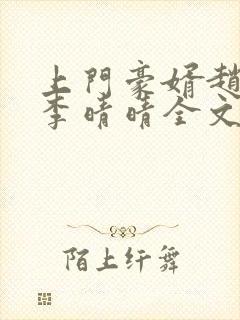 上門豪婿趙
李晴晴全文
陌上纤舞